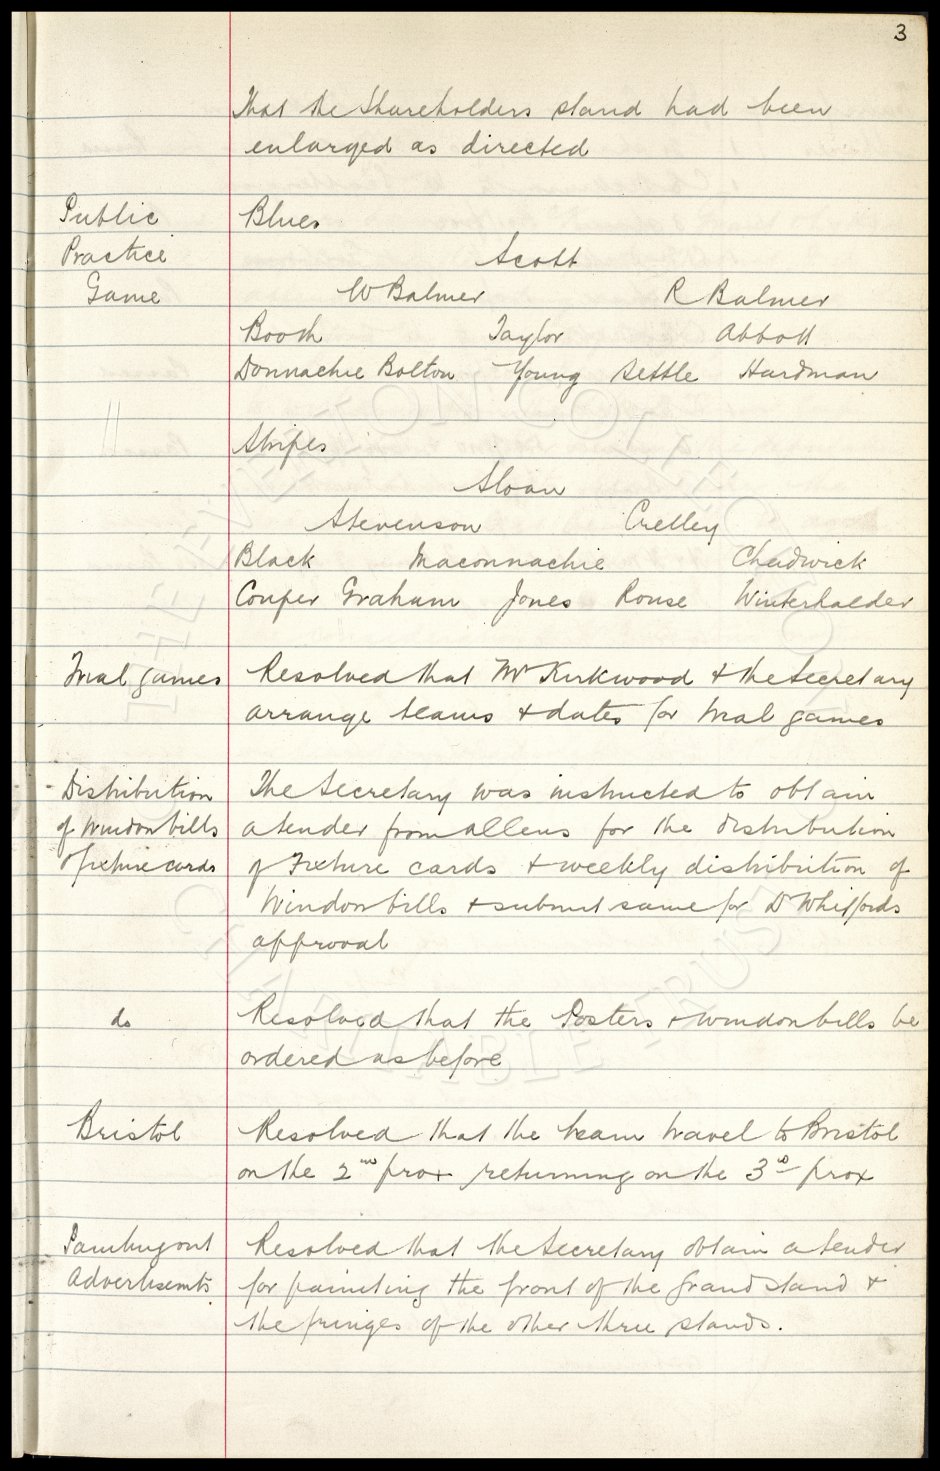 3
That the Shareholders stand had been
enlarged as directed
Public Blues
Practice Scott
Game W Balmer R Balmer
Booth Taylor Abbott
Donnachie Bolton Young Settle Hardman
" Stripes
Sloan
Stevenson Crelley
Black Maconnachie Chadwick
Couper Graham Jones Rouse Winterhalder
Trial games Resolved that Mr Kirkwood & the Secretary
arrange teams & dates for trial games
Distribution The Secretary was instructed to obtain
of Window bills a tender from Allens for the distribution
& fixture cards of Fixture cards & weekly distribution of
Window bills & submit same for Dr Whitfords
approval
do Resolved that the Posters & window bills be
ordered as before
Bristol Resolved that the team travel to Bristol
on the 2nd prox returning on the 3rd prox
Painting out Resolved that the Secretary obtain a tender
Advertisemts for painting the front of the Grand Stand &
the fringes of the other three stands.
THE EVERTON COLLECTION
CHARITABLE TRUST